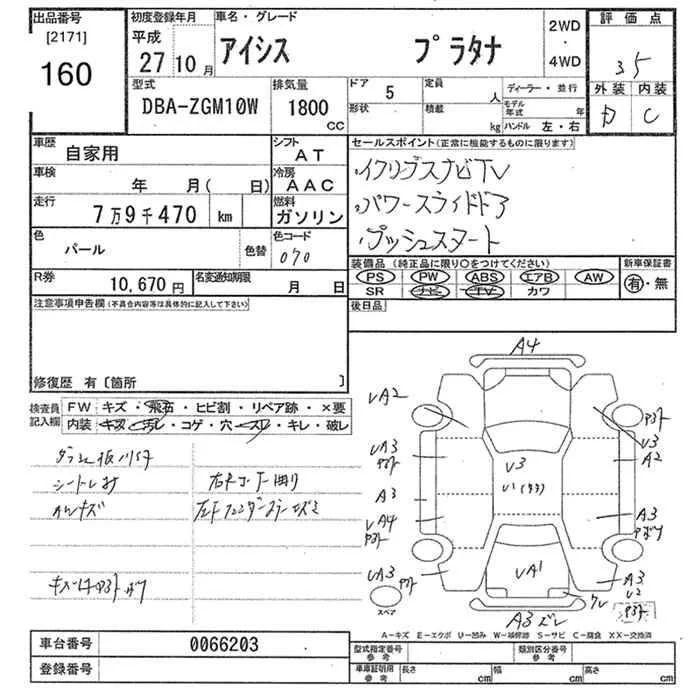 出品番号
[2171]
160
初度登録年月
平成
27 10 月
車名・グレード
アイシス プラタナ
2WD
・
4WD
評価点
3 5
外装 内装
C
型式
DBA-ZGM10W
排気量
1800
CC
ドア 5
定員 人
ディーラー・並行
形状
積載 kg
モデル年式 年
ハンドル 左・右
車歴
自家用
シフト
AT
車検
年 月( 日)
冷房
AAC
走行
7万9千470 km
燃料
ガソリン
色
パール
色替
色コード
070
R券
10,670円
名変通知期限
月 日
セールスポイント(正常に機能するものに限ります)
・イクリプスナビTV
・パワースライドドア
・プッシュスタート
装備品 (純正品に限り○をつけてください)
新車保証書
PS PW ABS エアB AW
有・無
SR ナビ TV カワ
後日品
注意事項申告欄(不具合内容等は具体的に記入して下さい)
修復歴 有〔箇所 〕
検査員
記入欄
FW キズ・飛石・ヒビ割・リペア跡・×要
内装 キズ・汚レ・コゲ・穴・スレ・キレ・破レ
AWキズ
A4
UA2
UA3
A3
UA4
UA3
スペア
U3
U1
UA1
A3
U3
A2
A3
A3
U2
A-キズ E-エクボ U-凹み W-補修跡 S-サビ C-腐食 XX-交換済
車台番号
0066203
登録番号
型式指定番号
参考
類別区分番号
参考
車庫証明用
参考
長さ cm
幅 cm
高さ cm